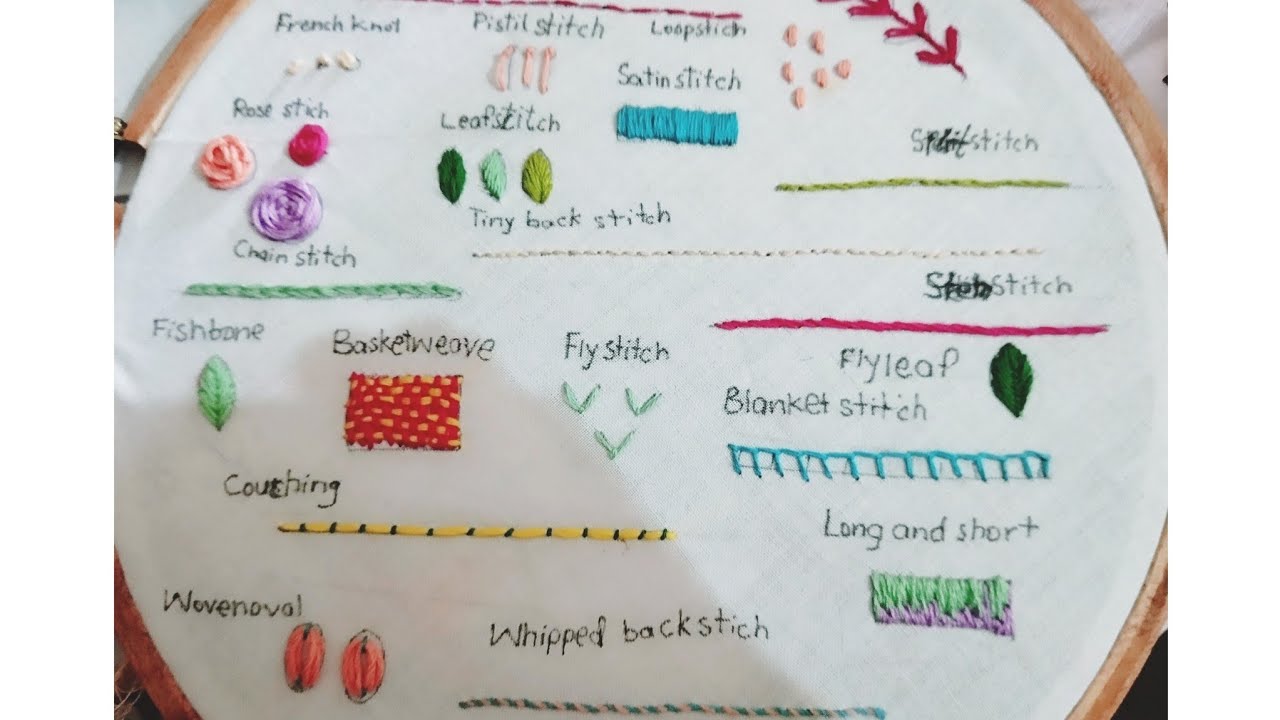 French Knot
Pistil stitch
Loopstich
Satin stitch
Rose stich
Leafstitch
Split stitch
Tiny back stritch
Chain stitch
Stitch
Fishbone
Basketweave
Fly stitch
Flyleaf
Blanket stritch
Couching
Long and short
Wovenoval
Whipped backstich